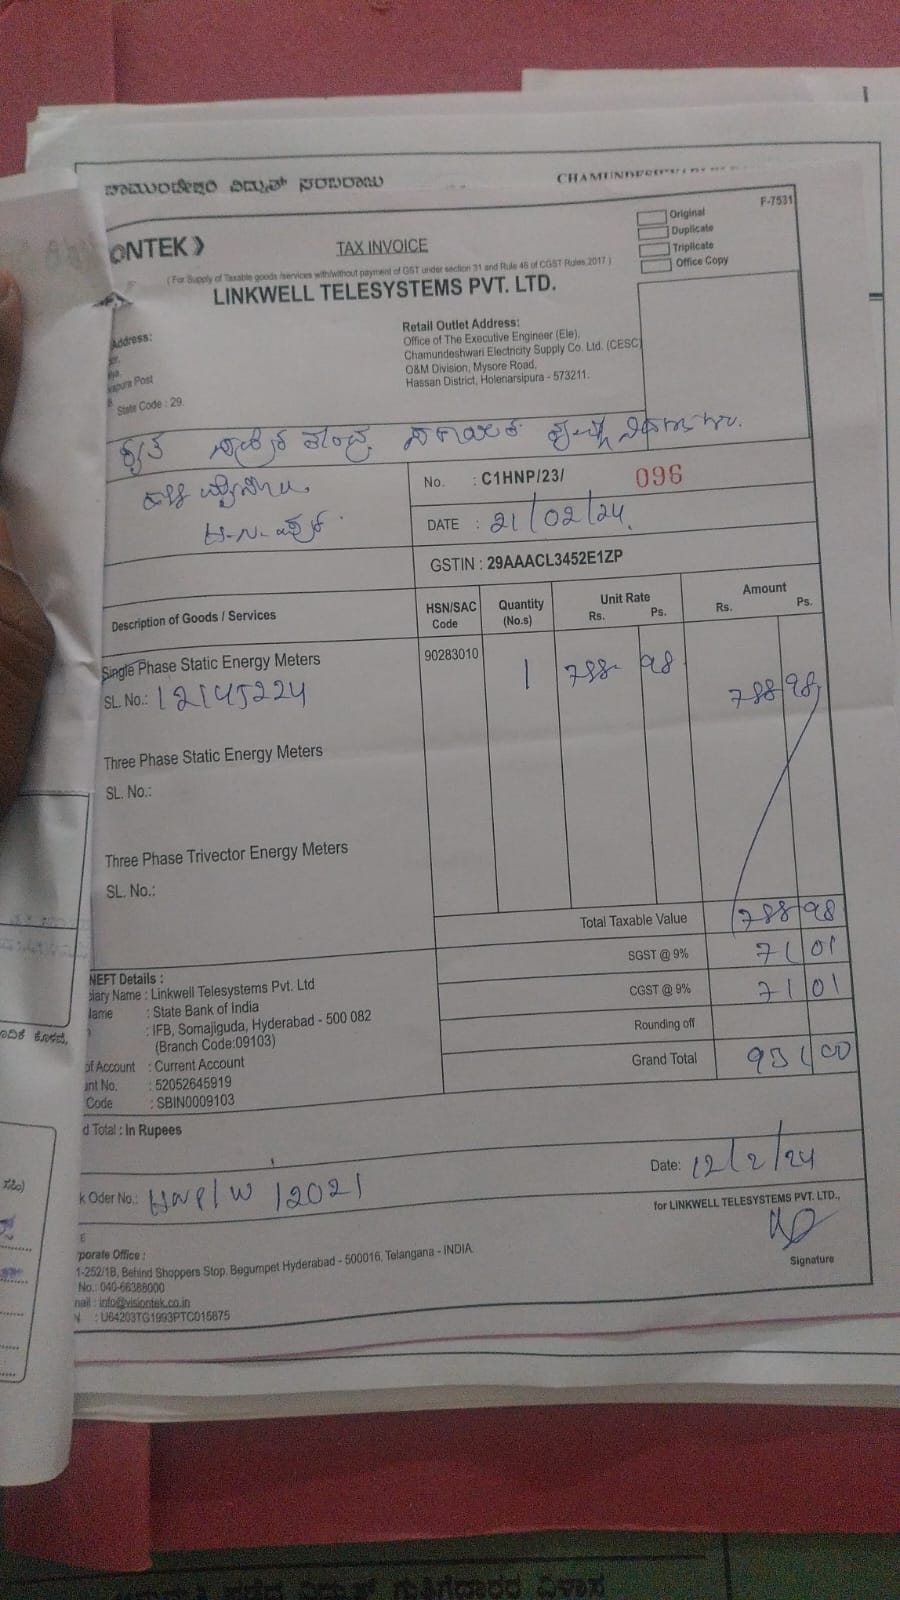 ಚಾಮುಂಡೇಶ್ವರಿ ವಿದ್ಯುತ್ ಸರಬರಾಜು
CHAMUNDESHWARI
F-7531
Original
Duplicate
Triplicate
Office Copy
ONTEK
TAX INVOICE
( For Supply of Taxable goods /services with/without payment of GST under section 31 and Rule 46 of CGST Rules,2017 )
LINKWELL TELESYSTEMS PVT. LTD.
Address:
Retail Outlet Address:
Office of The Executive Engineer (Ele),
Chamundeshwari Electricity Supply Co. Ltd. (CESC)
O&M Division, Mysore Road,
Hassan District, Holenarsipura - 573211.
apura Post
State Code : 29.
No. : C1HNP/23/ 096
DATE : 21/02/24
GSTIN : 29AAACL3452E1ZP
Description of Goods / Services HSN/SAC Code Quantity (No.s) Unit Rate Rs. Ps. Amount Rs. Ps.
Single Phase Static Energy Meters 90283010 1 788 98 788 98
SL. No.: 12145224
Three Phase Static Energy Meters
SL. No.:
Three Phase Trivector Energy Meters
SL. No.:
Total Taxable Value 788 98
SGST @ 9% 71 01
CGST @ 9% 71 01
Rounding off
Grand Total 931 00
NEFT Details :
ciary Name : Linkwell Telesystems Pvt. Ltd
Name : State Bank of India
: IFB, Somajiguda, Hyderabad - 500 082
(Branch Code:09103)
of Account : Current Account
unt No. : 52052645919
Code : SBIN0009103
d Total : In Rupees
k Oder No.: HNP/W/2021
Date: 12/2/24
for LINKWELL TELESYSTEMS PVT. LTD.,
Signature
rporate Office :
1-252/1B, Behind Shoppers Stop, Begumpet Hyderabad - 500016, Telangana - INDIA.
No.: 040-66388000
mail : info@visiontek.co.in
N : U64203TG1993PTC015875